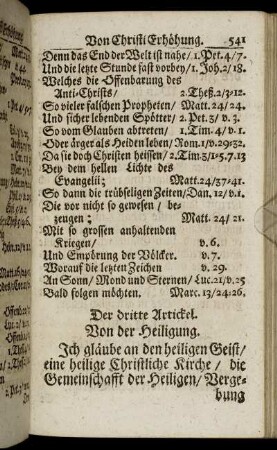 Von Christi Erhöhung. 541
Denn das End der Welt ist nahe/ 1. Pet. 4/7.
Und die letzte Stunde fast vorbey/ 1. Joh. 2/18.
Welches die Offenbarung des
Anti-Christs/ 2. Theß. 2/3-12.
So vieler falschen Propheten/ Matt. 24/24.
Und sicher lebenden Spötter/ 2. Pet. 3/ v. 3.
So vom Glauben abtreten/ 1. Tim. 4/ v. 1.
Oder ärger als Heiden leben/ Rom. 1/v. 29:32.
Da sie doch Christen heissen/ 2. Tim. 3/1-5.7.13
Bey dem hellen Lichte des
Evangelii; Matt. 24/37-41.
So dann die trübseligen Zeiten/ Dan. 12/ v. 1.
Die vor nicht so gewesen/ be-
zeugen; Matt. 24/21.
Mit so grossen anhaltenden
Kriegen/ v. 6.
Und Empörung der Völcker. v. 7.
Worauf die letzten Zeichen v. 29.
An Sonn/ Mond und Sternen/ Luc. 21/v. 25
Bald folgen möchten. Marc. 13/24:26.
Der dritte Artickel.
Von der Heiligung.
Ich gläube an den heiligen Geist/
eine heilige Christliche Kirche/ die
Gemeinschafft der Heiligen/ Verge-
bung